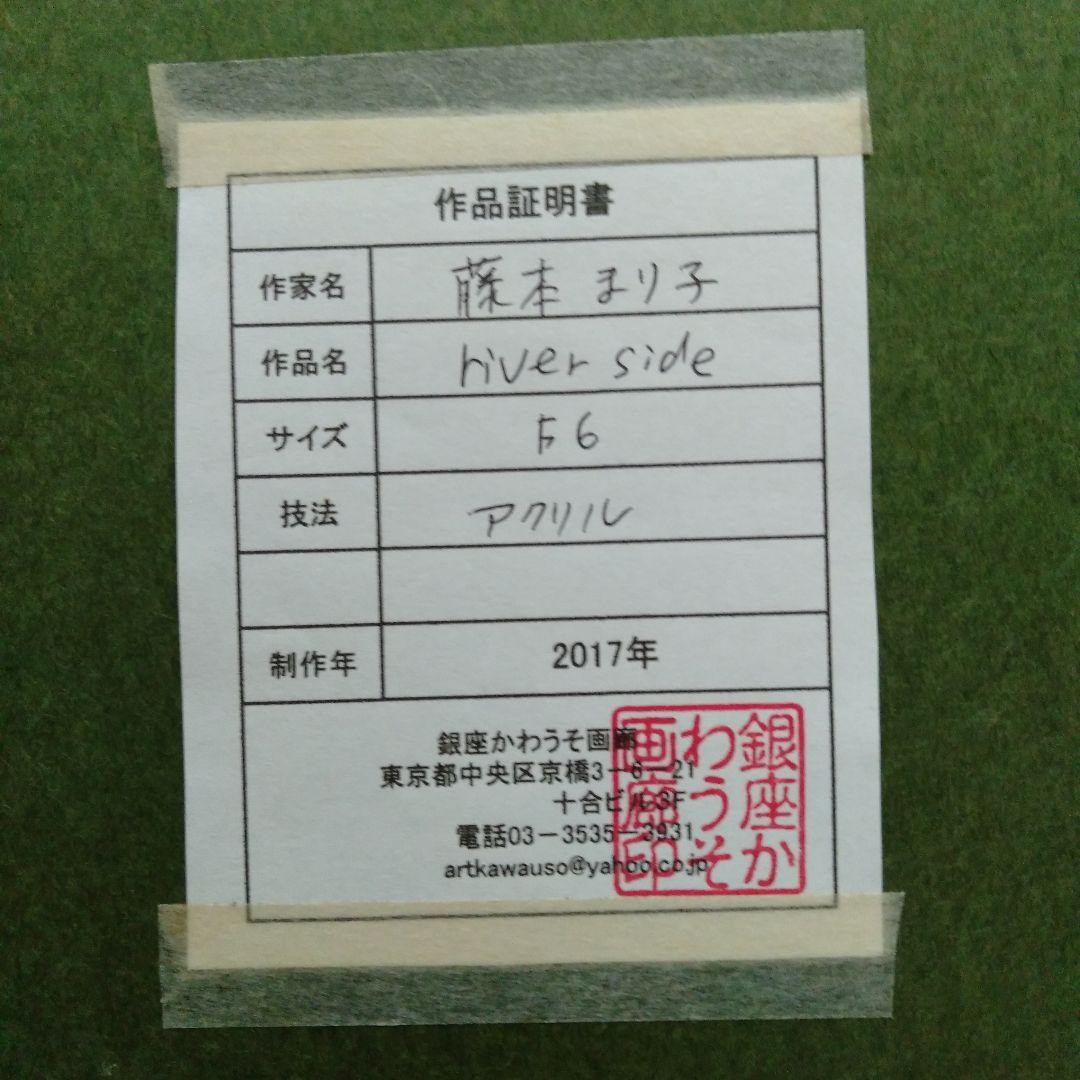 作品証明書
作家名 藤本 まり子
作品名 river side
サイズ F6
技法 アクリル
制作年 2017年
銀座かわうそ画廊
東京都中央区京橋3-6-21
十合ビル3F
電話03-3535-3931
artkawauso@yahoo.co.jp
銀座か
わうそ
画廊印